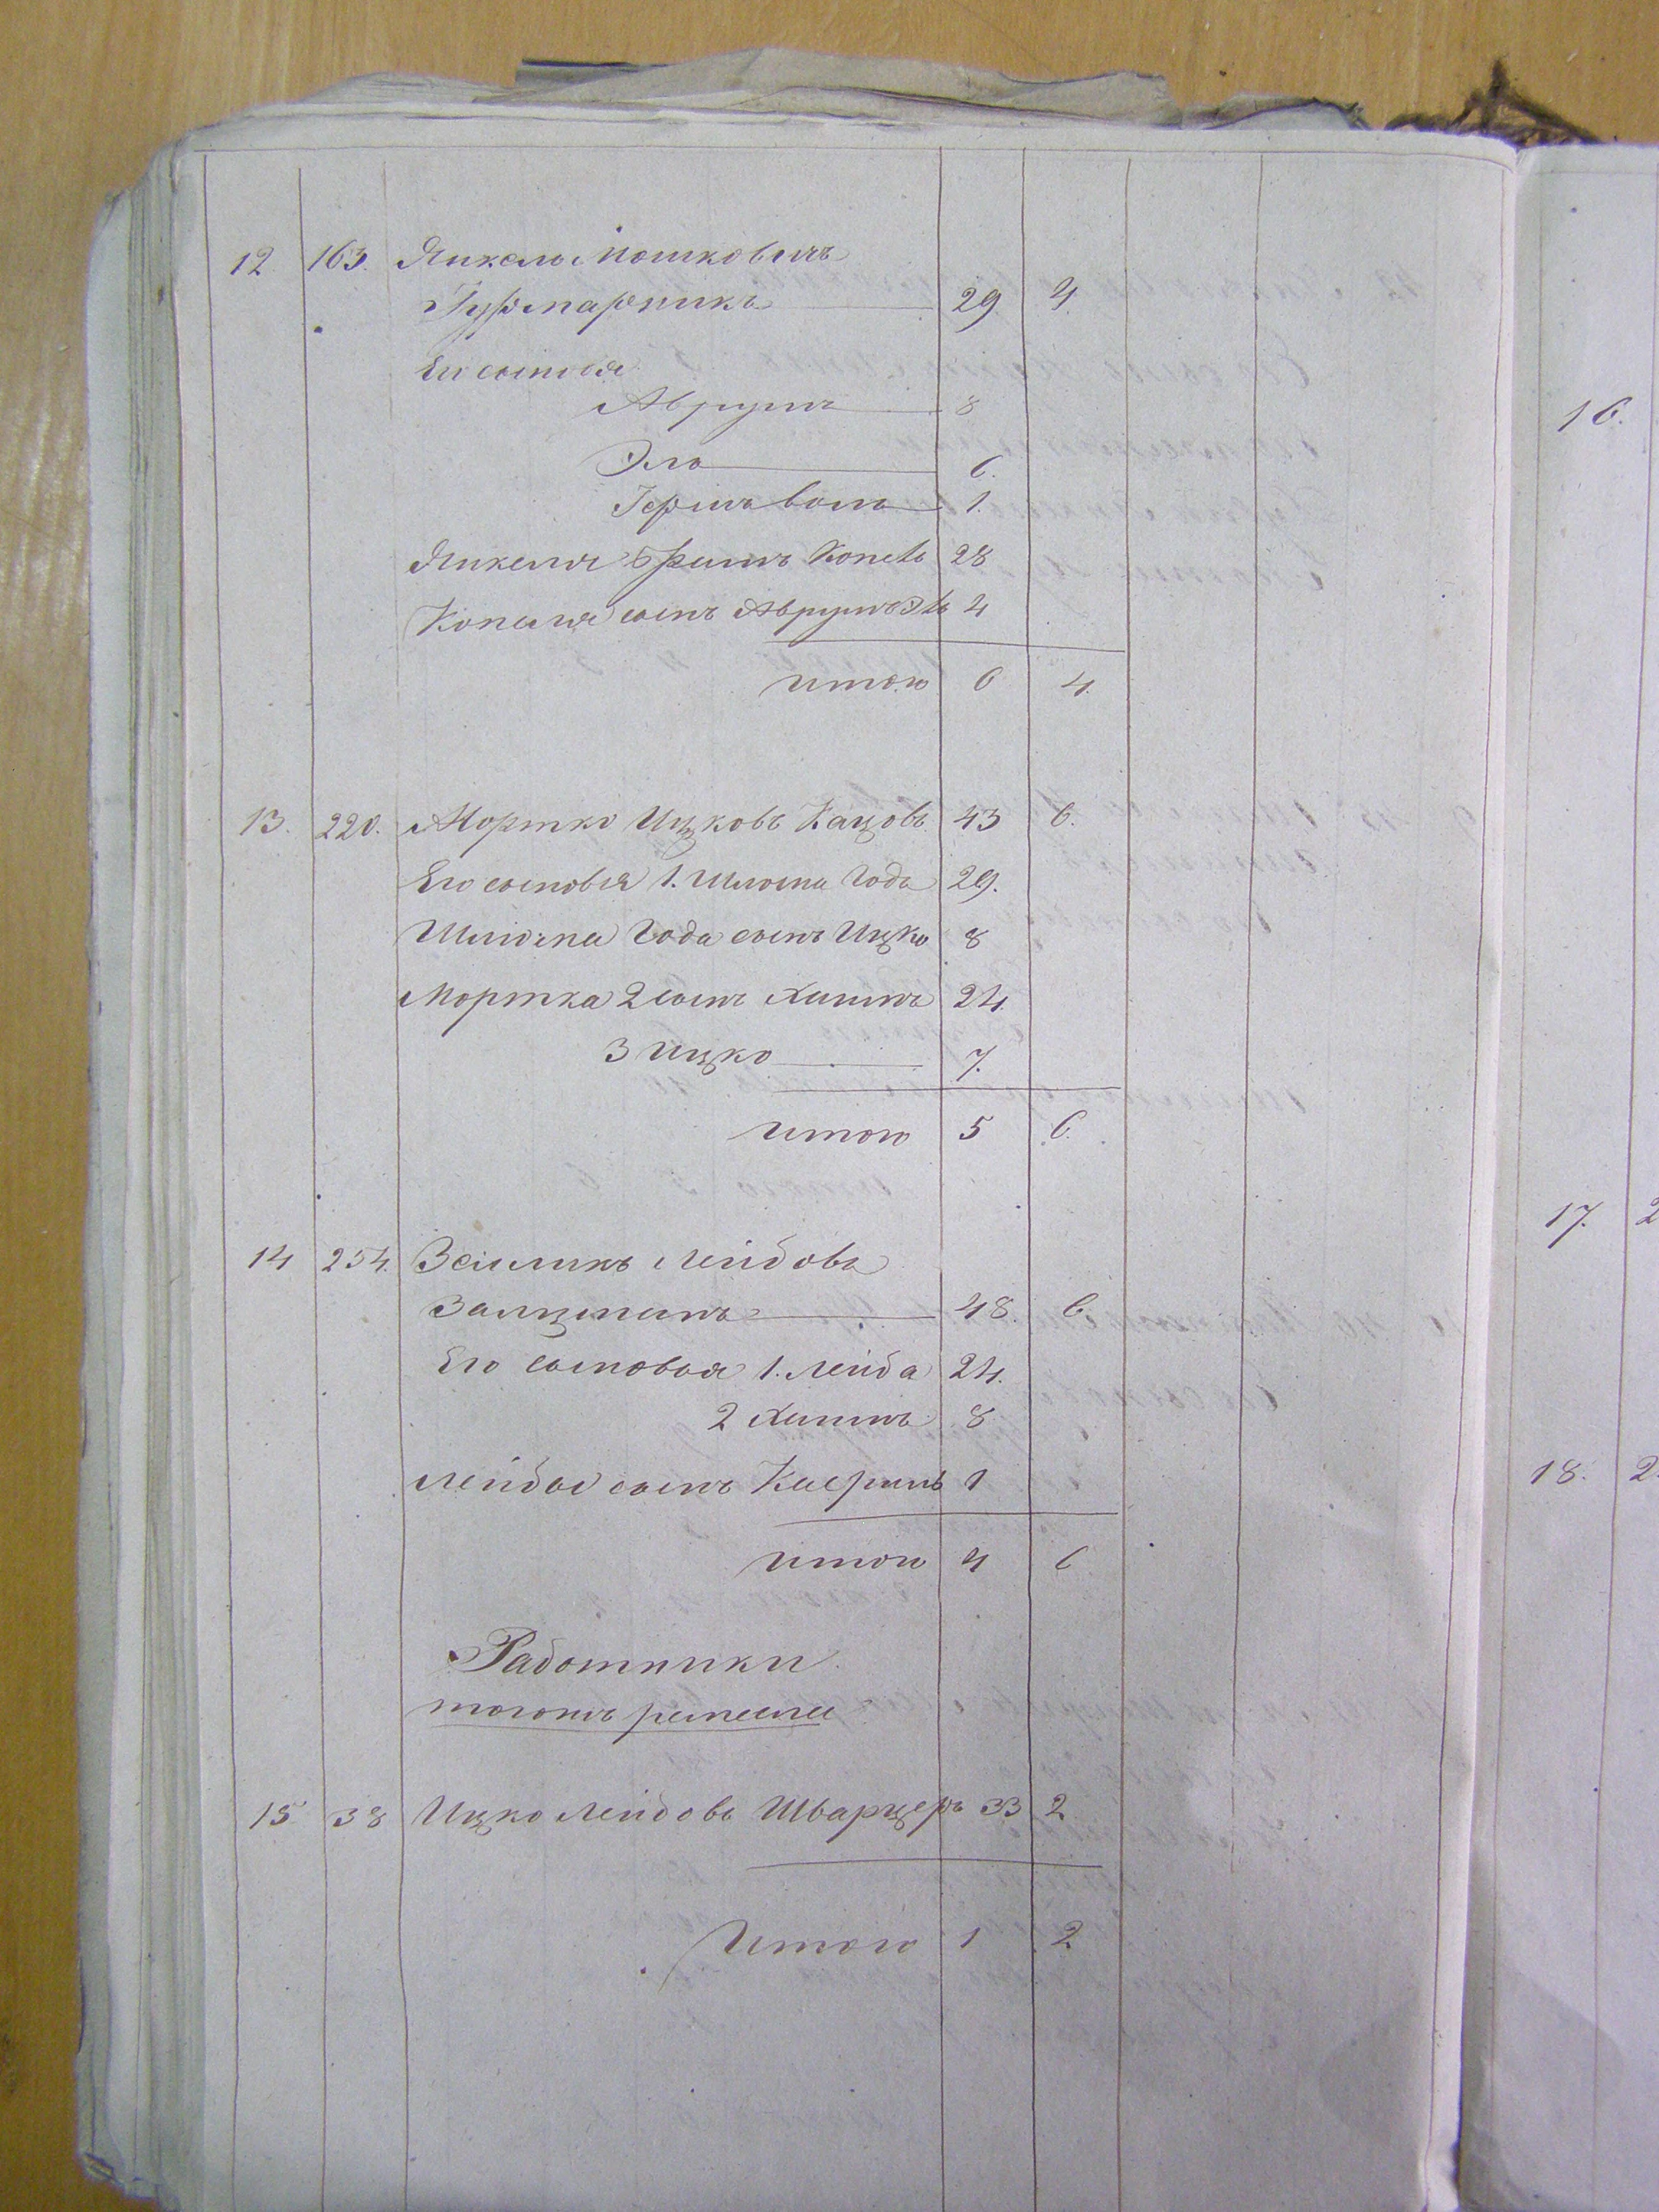 12. 163. Янкель Мошковичъ
Гурмарникъ 29. 4.
Его сыновья
Аврумъ 8
Эль 6.
Гершъ Волъ 1.
Янкеля братъ Копель 28
Копеля сынъ Аврумъ Эль 4
итого 6 4.
13. 220. Мортко Ицковъ Кацовъ 43 6.
Его сыновья 1. Шлома Года 29.
Шлома Года сынъ Ицко 8
Мортка 2 сынъ Хаимъ 24.
3 Ицко 7.
итого 5 6.
14 254. Зейликъ Лейбовъ
Залцманъ 48. 6.
Его сыновья 1. Лейба 24.
2 Хаимъ 8
Лейбы сынъ 1
итого 4 6
Работники
тогожъ ремесла
15 38 Ицко Лейбовъ Шварцеръ 33 2
Итого 1 2
16.
17. 2
18. 2